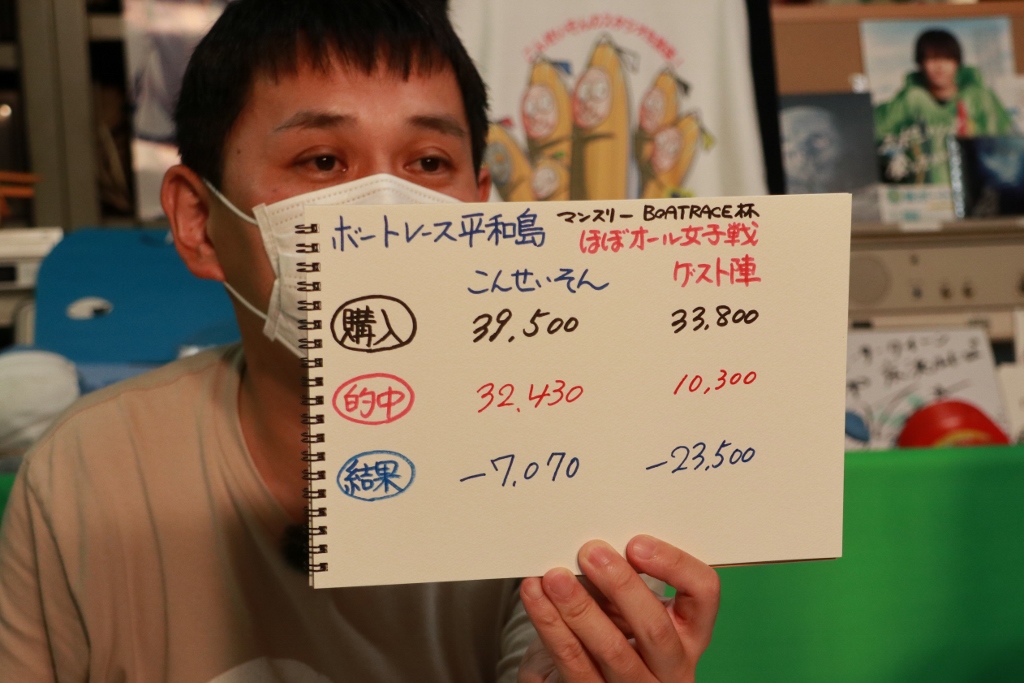 ボートレース平和島 マンスリー BOATRACE杯
ほぼオール女子戦
こんせいそん ゲスト陣
購入 39,500 33,800
的中 32,430 10,300
結果 -7,070 -23,500